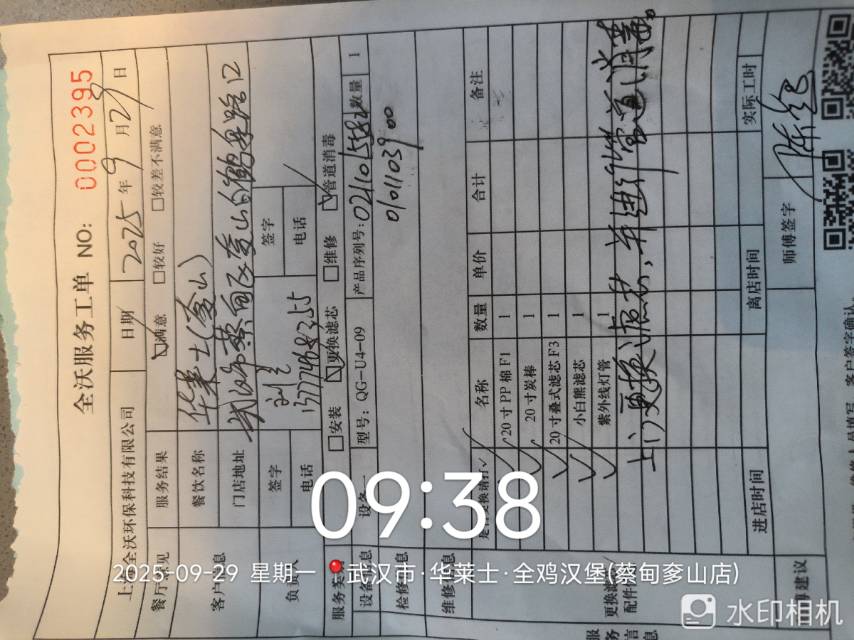 全沃服务工单 NO: 0002395
上海全沃环保科技有限公司 日期 2025年9月29日
服务结果 满意 较好 较差不满意
餐饮名称 华莱士(奓山)
门店地址 武汉市蔡甸区奓山
签字 签字
电话 电话
负责人
安装 更换滤芯 维修 管道消毒
型号: QG-U4-09 产品序列号: 数量 1
0101103900
名称 数量 单价 合计 备注
20寸PP棉F1 1
20寸炭棒 1
20寸叠式滤芯F3 1
小白熊滤芯 1
紫外线灯管 1
上门更换滤芯,并进行管道消毒。
进店时间 离店时间 实际工时
师傅签字
09:38
2025-09-29 星期一 武汉市·华莱士·全鸡汉堡(蔡甸奓山店)
水印相机